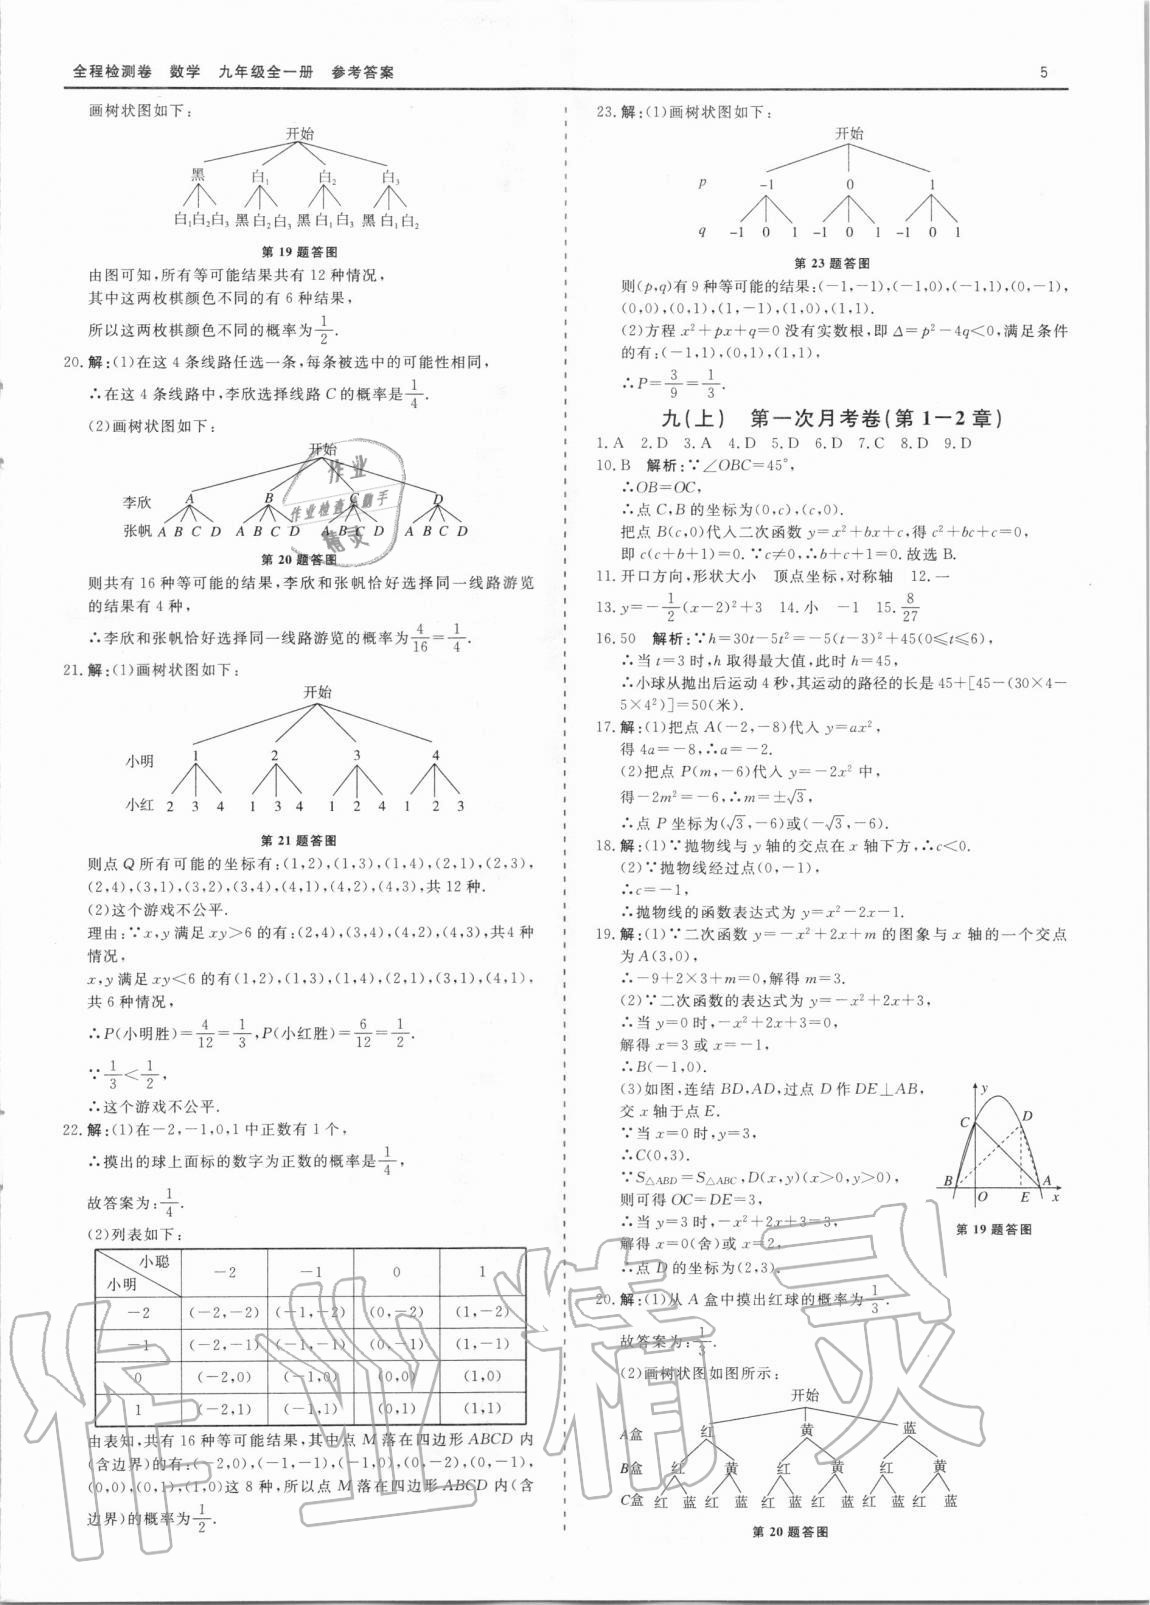 全程检测卷 数学 九年级全一册 参考答案
5
画树状图如下:
开始
黑 白₁ 白₂ 白₃
白₁白₂白₃ 黑白₂白₃ 黑白₁白₃ 黑白₁白₂
第 19 题答图
由图可知,所有等可能结果共有 12 种情况,
其中这两枚棋颜色不同的有 6 种结果,
所以这两枚棋颜色不同的概率为1/2.
20.解:(1)在这 4 条线路任选一条,每条被选中的可能性相同,
∴在这 4 条线路中,李欣选择线路 C 的概率是1/4.
(2)画树状图如下:
开始
李欣 A B C D
张帆 A B C D A B C D A B C D A B C D
第 20 题答图
则共有 16 种等可能的结果,李欣和张帆恰好选择同一线路游览
的结果有 4 种,
∴李欣和张帆恰好选择同一线路游览的概率为4/16=1/4.
21.解:(1)画树状图如下:
开始
小明 1 2 3 4
小红 2 3 4 1 3 4 1 2 4 1 2 3
第 21 题答图
则点 Q 所有可能的坐标有:(1,2),(1,3),(1,4),(2,1),(2,3),
(2,4),(3,1),(3,2),(3,4),(4,1),(4,2),(4,3),共 12 种.
(2)这个游戏不公平.
理由:∵x,y 满足 xy>6 的有:(2,4),(3,4),(4,2),(4,3),共4 种
情况,
x,y 满足 xy<6 的有(1,2),(1,3),(1,4),(2,1),(3,1),(4,1),
共 6 种情况,
∴P(小明胜)=4/12=1/3,P(小红胜)=6/12=1/2.
∵1/3<1/2,
∴这个游戏不公平.
22.解:(1)在-2,-1,0,1 中正数有 1 个,
∴摸出的球上面标的数字为正数的概率是1/4,
故答案为:1/4.
(2)列表如下:
小聪 小明 -2 -1 0 1
-2 (-2,-2) (-1,-2) (0,-2) (1,-2)
-1 (-2,-1) (-1,-1) (0,-1) (1,-1)
0 (-2,0) (-1,0) (0,0) (1,0)
1 (-2,1) (-1,1) (0,1) (1,1)
由表知,共有 16 种等可能结果,其中点 M 落在四边形 ABCD 内
(含边界)的有:(-2,0),(-1,-1),(-1,0),(0,-2),(0,-1),
(0,0),(0,1),(1,0)这 8 种,所以点 M 落在四边形 ABCD 内(含
边界)的概率为1/2.
23.解:(1)画树状图如下:
开始
p -1 0 1
q -1 0 1 -1 0 1 -1 0 1
第 23 题答图
则(p,q)有 9 种等可能的结果:(-1,-1),(-1,0),(-1,1),(0,-1),
(0,0),(0,1),(1,-1),(1,0),(1,1).
(2)方程 x²+px+q=0 没有实数根,即 Δ=p²-4q<0,满足条件
的有:(-1,1),(0,1),(1,1),
∴P=3/9=1/3.
九(上) 第一次月考卷(第 1-2 章)
1.A 2.D 3.A 4.D 5.D 6.D 7.C 8.D 9.D
10.B 解析:∵∠OBC=45°,
∴OB=OC,
∴点 C,B 的坐标为(0,c),(c,0).
把点 B(c,0)代入二次函数 y=x²+bx+c,得 c²+bc+c=0,
即 c(c+b+1)=0.∵c≠0,∴b+c+1=0.故选 B.
11.开口方向,形状大小 顶点坐标,对称轴 12.一
13.y=-1/2(x-2)²+3 14.小 -1 15.8/27
16.50 解析:∵h=30t-5t²=-5(t-3)²+45(0≤t≤6),
∴当 t=3 时,h 取得最大值,此时 h=45,
∴小球从抛出后运动 4 秒,其运动的路径的长是 45+[45-(30×4-
5×4²)]=50(米).
17.解:(1)把点 A(-2,-8)代入 y=ax²,
得 4a=-8,∴a=-2.
(2)把点 P(m,-6)代入 y=-2x² 中,
得-2m²=-6,∴m=±√3,
∴点 P 坐标为(√3,-6)或(-√3,-6).
18.解:(1)∵抛物线与 y 轴的交点在 x 轴下方,∴c<0.
(2)∵抛物线经过点(0,-1),
∴c=-1,
∴抛物线的函数表达式为 y=x²-2x-1.
19.解:(1)∵二次函数 y=-x²+2x+m 的图象与 x 轴的一个交点
为 A(3,0),
∴-9+2×3+m=0,解得 m=3.
(2)∵二次函数的表达式为 y=-x²+2x+3,
∴当 y=0 时,-x²+2x+3=0,
解得 x=3 或 x=-1,
∴B(-1,0).
(3)如图,连结 BD,AD,过点 D 作 DE⊥AB,
交 x 轴于点 E.
∵当 x=0 时,y=3,
∴C(0,3).
∵S△ABD=S△ABC,D(x,y)(x>0,y>0),
则可得 OC=DE=3,
∴当 y=3 时,-x²+2x+3=3,
解得 x=0(舍)或 x=2,
∴点 D 的坐标为(2,3).
y C D B O E A x
第 19 题答图
20.解:(1)从 A 盒中摸出红球的概率为1/3.
故答案为:1/3.
(2)画树状图如图所示:
开始
A盒 红 黄 蓝
B盒 红 黄 红 黄 红 黄
C盒 红 蓝 红 蓝 红 蓝 红 蓝 红 蓝 红 蓝
第 20 题答图
作业
作业检查小助手
精灵
作业精灵